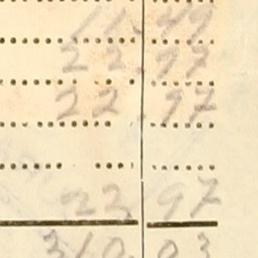 11.49
22.97
22.97
22.97
310.03